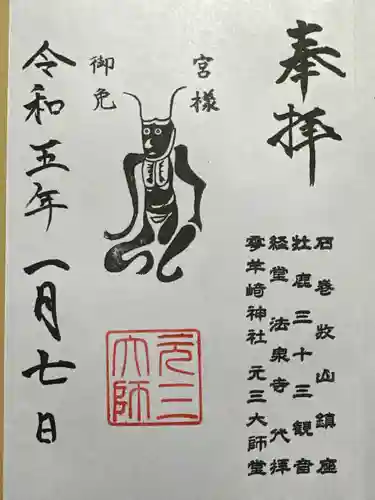 奉拝
石巻牧山鎮座
牡鹿三十三観音
経堂 法泉寺 代拝
零羊崎神社 元三大師堂
宮様
御免
元三大師
令和五年一月七日